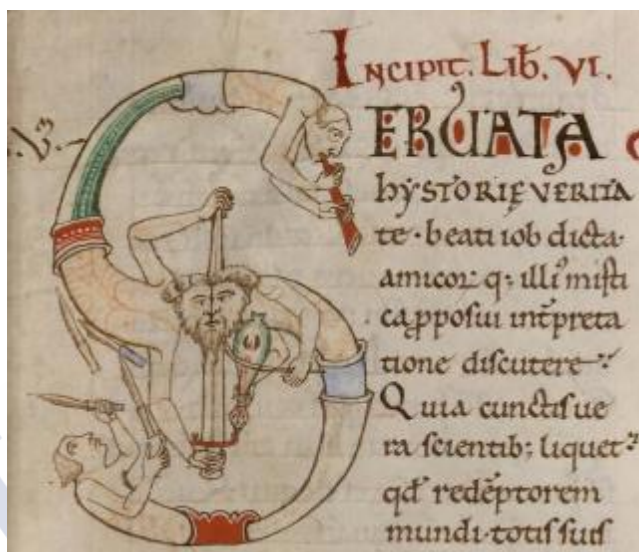 Incipit. Lib. VI.
ERUATA
hYSTORIĘ VERITA
te · beati iob dicta ·
amicor q; illi' misti
ca pposui intpreta
tione discutere
Quia cunctis ue
ra scientib; liquet
qd redēptorem
mundi · totis suis